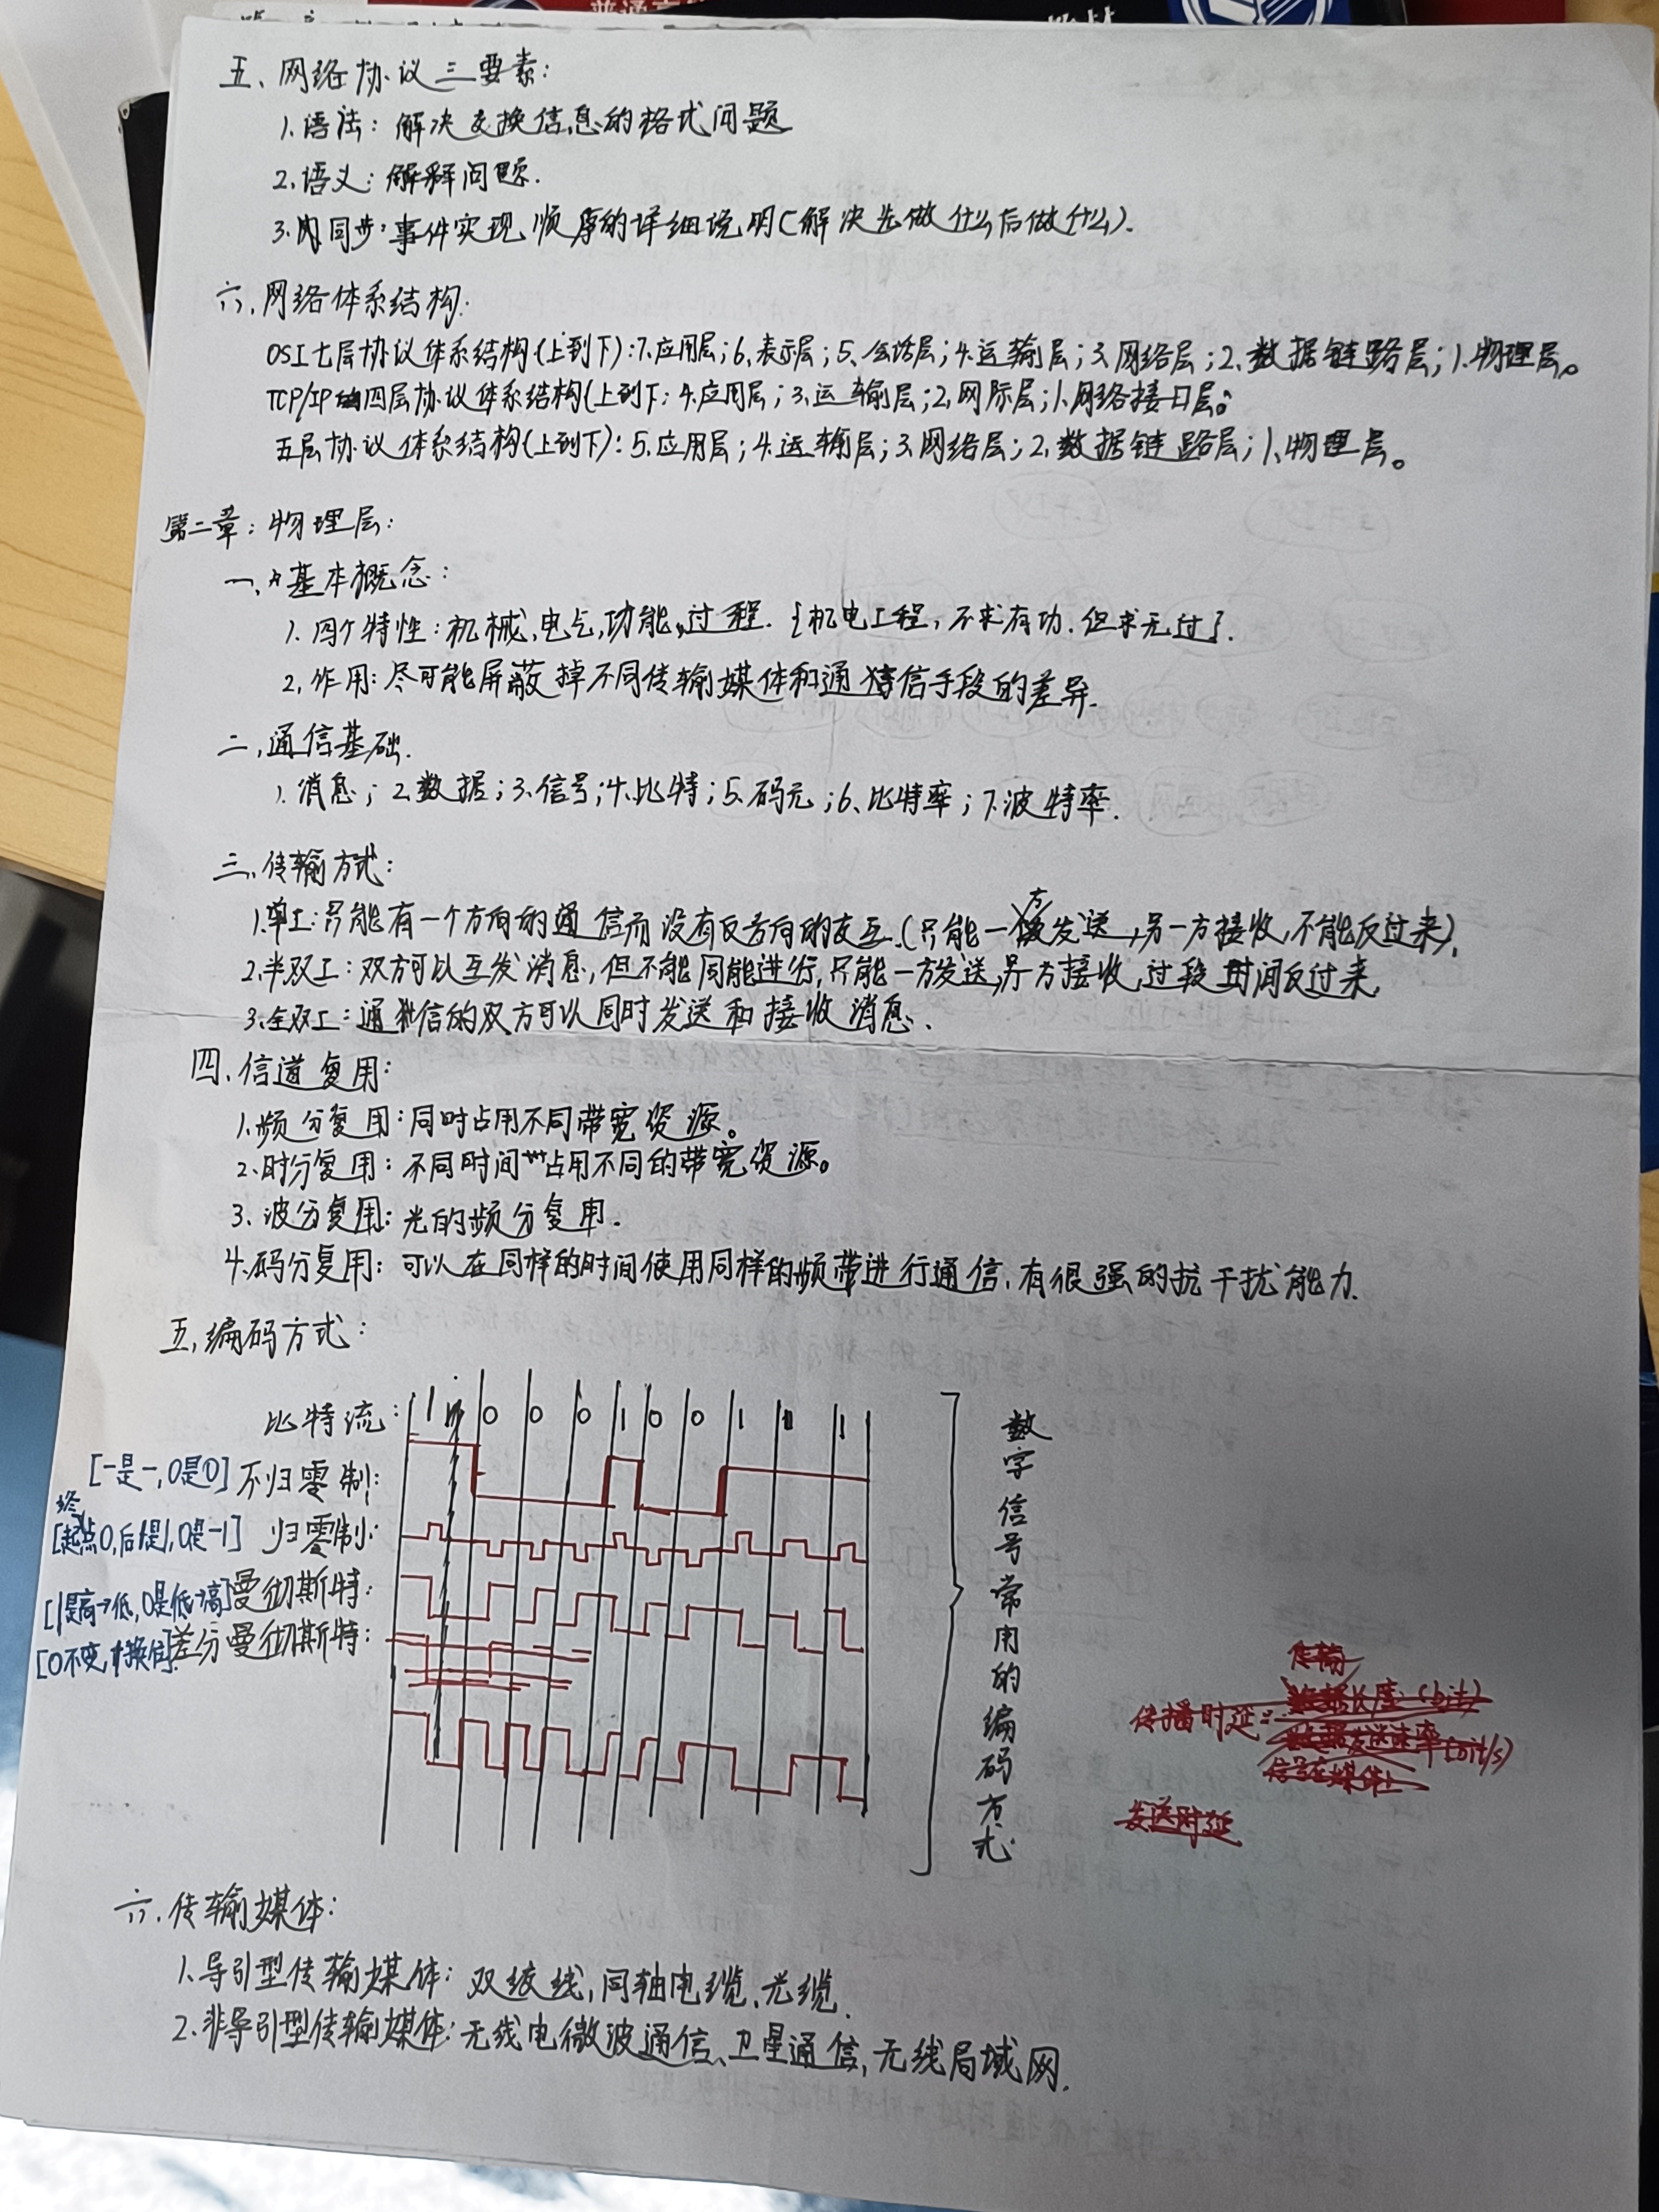 五、网络协议三要素：
1.语法：解决交换信息的格式问题
2.语义：解释问题.
3.同步：事件实现顺序的详细说明(解决先做什么后做什么).
六、网络体系结构：
OSI七层协议体系结构(上到下)：7.应用层；6.表示层；5.会话层；4.运输层；3.网络层；2.数据链路层；1.物理层。
TCP/IP四层协议体系结构(上到下：4.应用层；3.运输层；2.网际层；1.网络接口层。
五层协议体系结构(上到下)：5.应用层；4.运输层；3.网络层；2.数据链路层；1.物理层。
第二章：物理层：
一、基本概念：
1.四个特性：机械、电气，功能，过程.{机电工程，不求有功.但求无过}.
2.作用：尽可能屏蔽掉不同传输媒体和通信手段的差异.
二，通信基础.
1.消息；2.数据；3.信号；4.比特；5.码元；6.比特率；7.波特率.
三、传输方式：
1.单工：只能有一个方向的通信而没有反方向的交互.(只能一方发送，另一方接收，不能反过来).
2.半双工：双方可以互发消息，但不能同能进行，只能一方发送，另方接收，过段时间反过来.
3.全双工：通信的双方可以同时发送和接收消息.
四、信道复用：
1.频分复用：同时占用不同带宽资源。
2.时分复用：不同时间占用不同的带宽资源。
3.波分复用：光的频分复用.
4.码分复用：可以在同样的时间使用同样的频带进行通信，有很强的抗干扰能力.
五，编码方式：
比特流： 1 0 0 0 1 0 0 1 1 1
[一是一,0是0] 不归零制：
[起终点0,后1是1,0是-1] 归零制：
[1是高→低,0是低→高] 曼彻斯特：
[0不变,1换位] 差分曼彻斯特：
数字信号常用的编码方式
传输
传播时延=数据长度(bit)
数据发送速率(bit/s)
信号在媒体上
发送时延
六、传输媒体：
1.导引型传输媒体：双绞线，同轴电缆、光缆.
2.非导引型传输媒体：无线电微波通信、卫星通信，无线局域网.